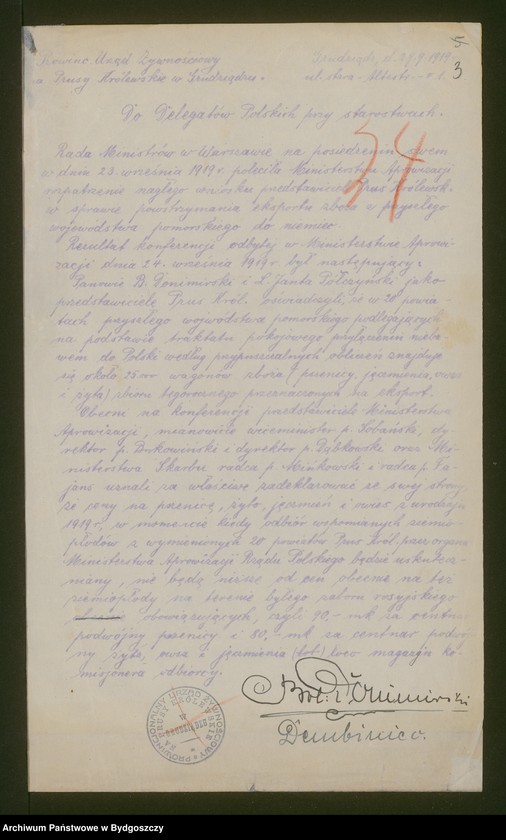 Prowinc. Urząd Żywnościowy
na Prusy Królewskie w Grudziądzu.
Grudziądz, d. 29.9.1919
5
3
Do Delegatów Polskich przy starostwach.
24
Rada Ministrów w Warszawie na posiedzeniu swem
w dnia 23. września 1919 r. poleciła Ministerstwu Aprowizacji
rozpatrzenie nagłego wniosku przedstawicieli Prus Królewsk.
w sprawie powstrzymania eksportu zboża z przyszłego
województwa pomorskiego do niemiec.
Rezultat konferencji odbytej w Ministerstwie Aprowi-
zacji dnia 24. września 1919 r był następujący:
Panowie B. Donimirski i L. Janta Półczyński jako
przedstawiciele Prus Król. oświadczyli, że w 20 powia-
tach przyszłego wojewódstwa pomorskiego podlegających
na podstawie traktatu pokojowego przyłączeniu nieba-
wem do Polski według przypuszczalnych obliczeń znajduje
się około 25000 wagonów zboża (pszenicy, jęczmienia, owsa
i żyta) zbioru tegorocznego przeznaczonych na eksport.
Obecni na konferencji przedstawiciele Ministerstwa
Aprowizacji, mianowicie wiceminister p. Sobański, dy-
rektor p. Bukowiński i dyrektor p. Dąbkowski oraz Mi-
nisterstwa Skarbu radca p. Minkowski i radca p. Fa-
jans uznali za właściwe zadeklarować ze swej strony
że ceny na pszenicę, żyto, jęczmień i owies z urodzaju
1919 r., w momencie kiedy odbiór wspomnianych ziemio-
płodów z wymienionych 20 powiatów Prus Król. przez organa
Ministerstwa Aprowizacji Rządu Polskiego będzie uskutecz-
niany, nie będą niższe od cen obecnie na też
ziemiopłody na terenie byłego zaboru rosyjskiego
obowiązujących, czyli 90,- mk za centnar
podwójny pszenicy i 80,- mk za centnar podwój-
ny żyta, owsa i jęczmienia loco magazyn ko-
misjonera odbiorcy.
Bol. Donimirski
Dembiniec.
PROWINCJONALNY URZĄD ŻYWNOŚCIOWY NA PRUSY KRÓLEWSKIE W GRUDZIĄDZU
Archiwum Państwowe w Bydgoszczy